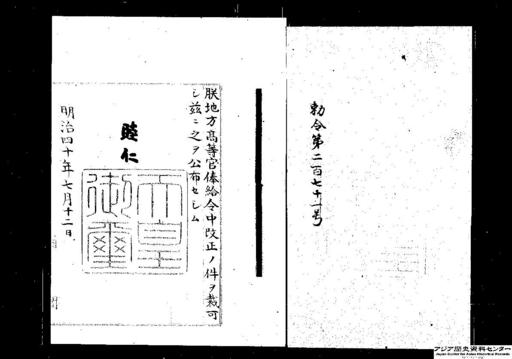 勅令第二百七十一号
朕地方高等官俸給令中改正ノ件ヲ裁可
シ茲ニ之ヲ公布セシム
睦仁
天皇御璽
明治四十年七月十二日
アジア歴史資料センター
Japan Center for Asian Historical Records